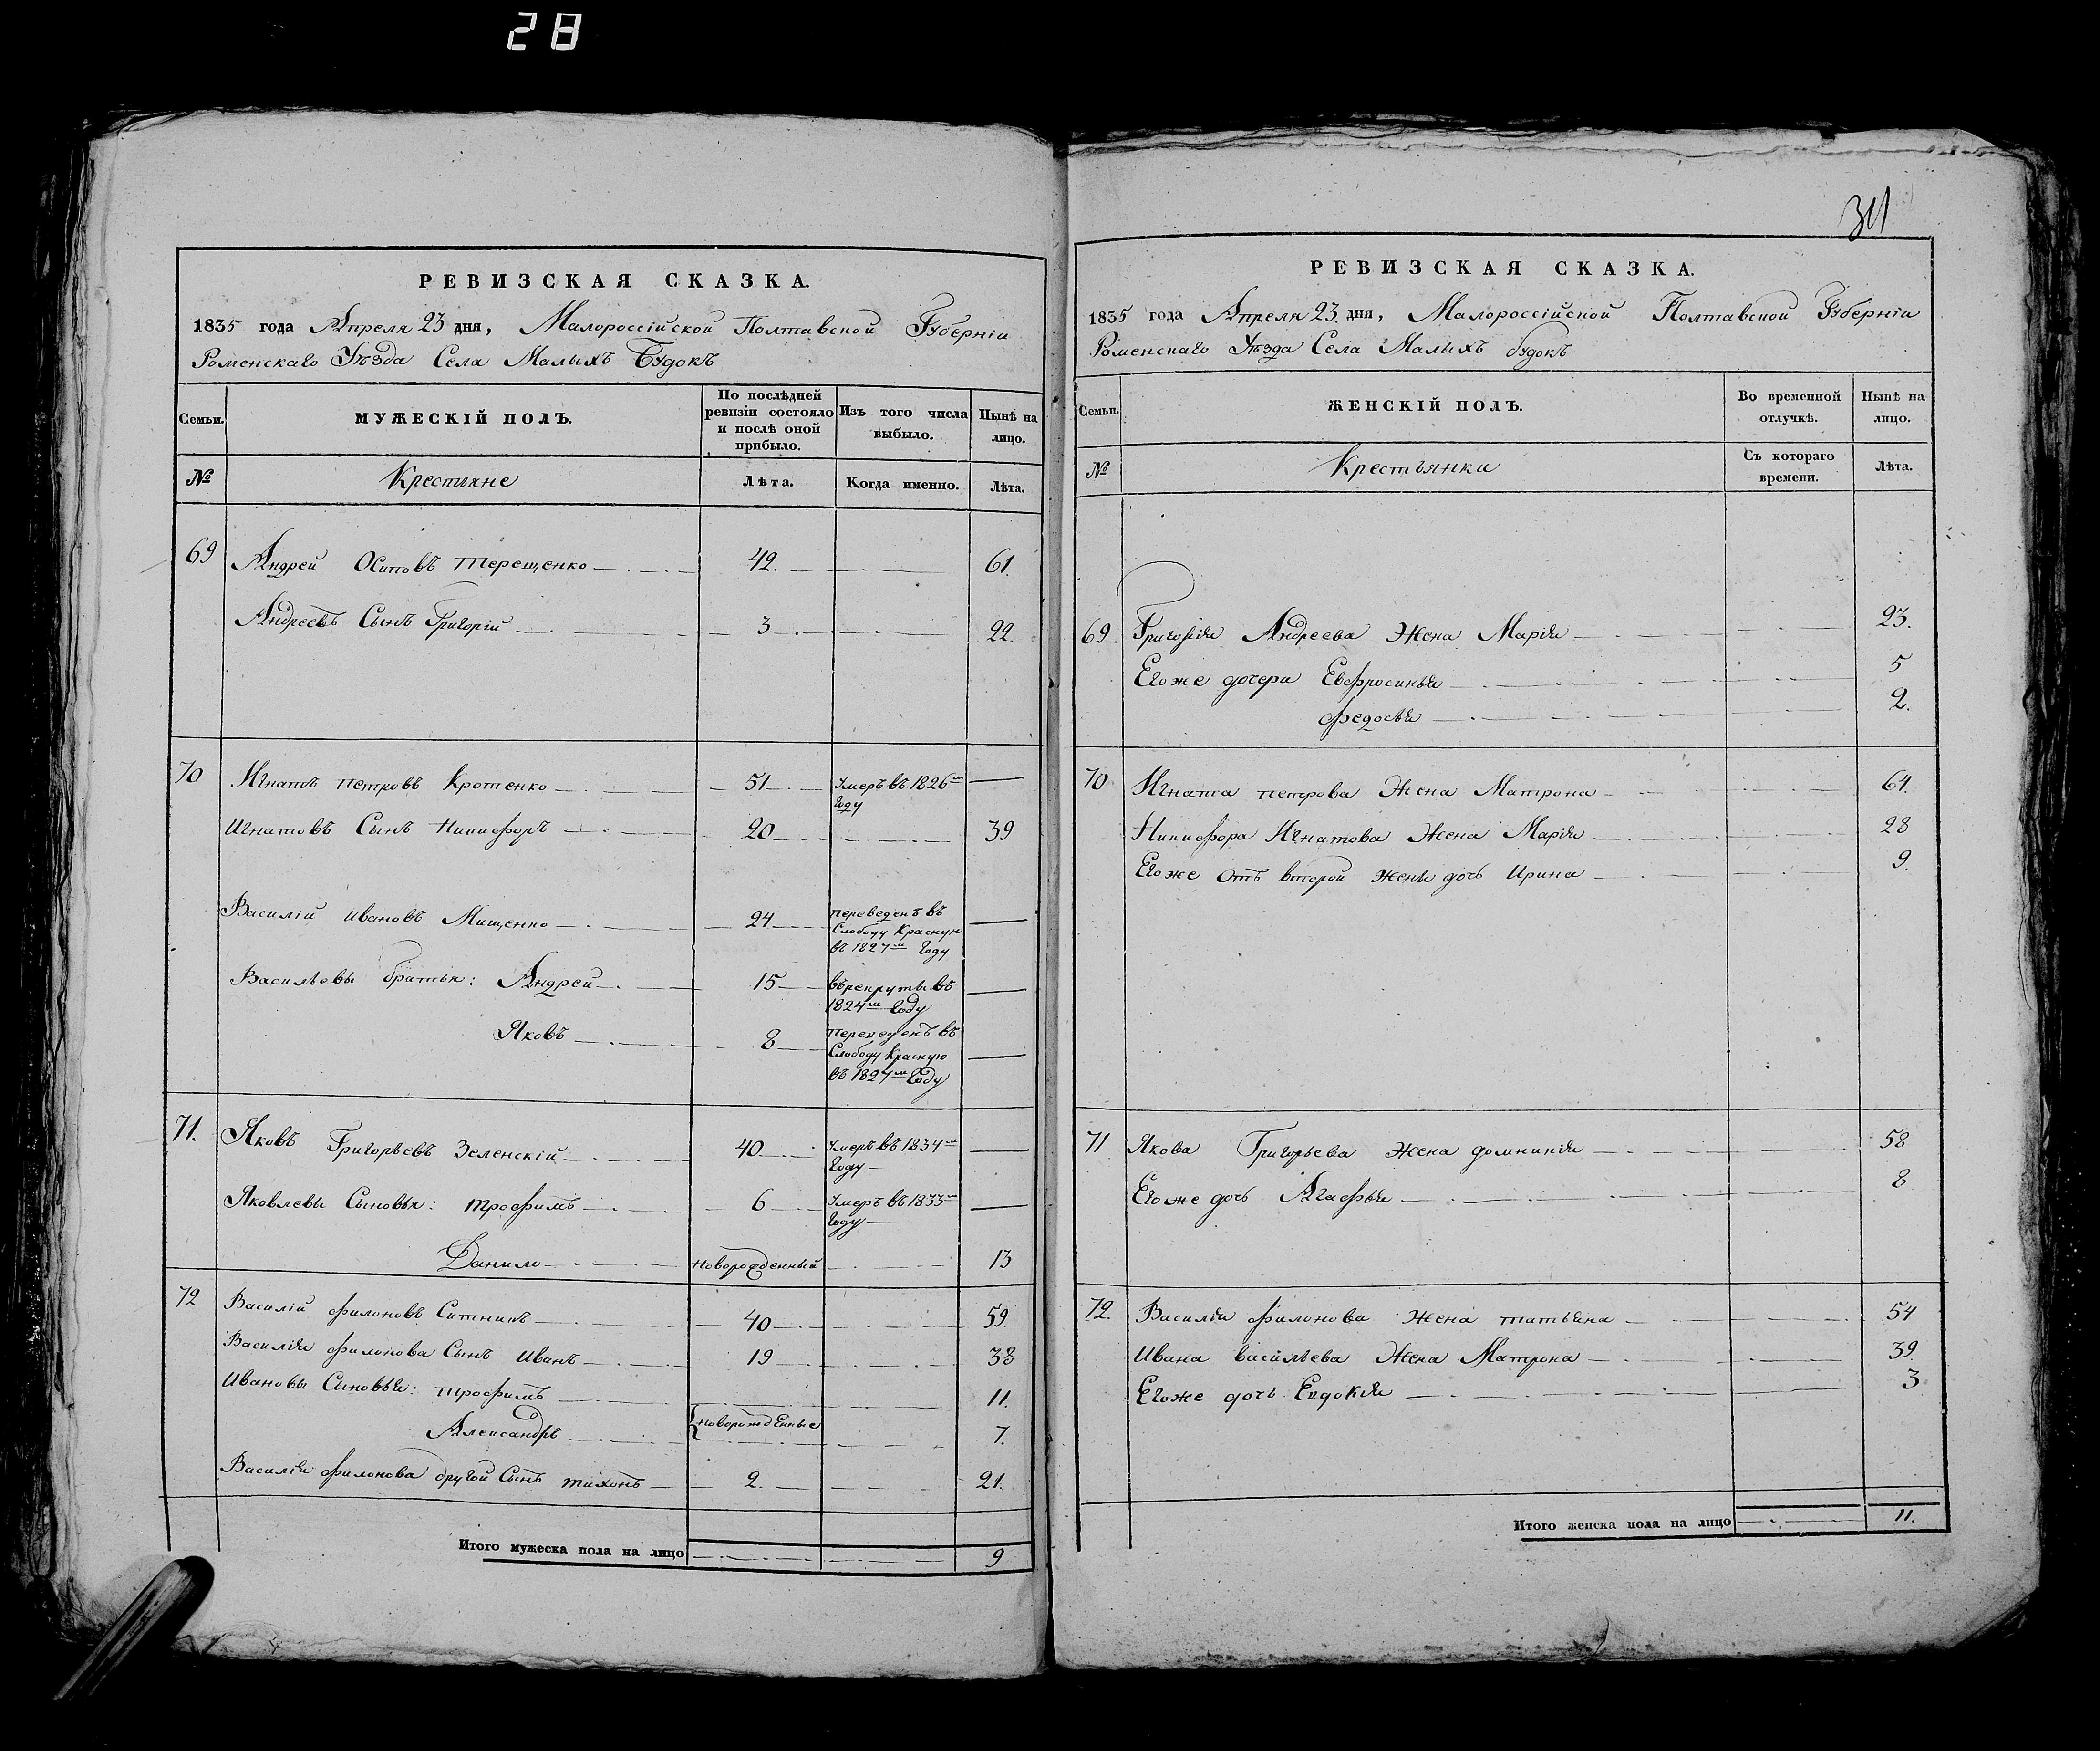 28
РЕВИЗСКАЯ СКАЗКА.
1835 года Апреля 23 дня, Малороссійской Полтавской Губерніи
Роменскаго Уѣзда Села Малыхъ Будокъ
Семьи.
МУЖЕСКІЙ ПОЛЪ.
По послѣдней ревизіи состояло и послѣ оной прибыло.
Изъ того числа выбыло.
Нынѣ на лицо.
№
Крестьяне
Лѣта.
Когда именно.
Лѣта.
69 Андрей Осиповъ Терещенко 42. 61.
Андреевъ Сынъ Григорій 3 22.
70 Игнатъ петровъ Кротенко 51 Умеръ въ 1826м Году
Игнатовъ Сынъ Никифоръ 20 39
Василій ивановъ Мищенко 24 переведенъ въ Слободу Красную въ 1827м Году
Васильевы братья: Андрей 15 въ рекруты въ 1824м Году
Яковъ 8 переведенъ въ Слободу Красную въ 1827м Году
71. Яковъ Григорьевъ Зеленскій 40 Умеръ въ 1834м Году
Яковлевы Сыновья: трофимъ 6 Умеръ въ 1833м Году
Данило новорожденный 13
72 Василій филоновъ Ситникъ 40 59.
Василія филонова Сынъ иванъ 19 38
ивановы Сыновья: трофимъ 11.
Александръ новорожденные 7.
Василія филонова другой Сынъ тихонъ 2. 21.
Итого мужеска пола на лицо 9
31
РЕВИЗСКАЯ СКАЗКА.
1835 года Апреля 23 дня, Малороссійской Полтавской Губерніи
Роменскаго Уѣзда Села Малыхъ будокъ
Семьи.
ЖЕНСКІЙ ПОЛЪ.
Во временной отлучкѣ.
Нынѣ на лицо.
№
Крестьянки
Съ котораго времени.
Лѣта.
69 Григорія Андреева Жена Марія 23.
Егоже дочери Евфросинья 5
федосья 2.
70 Игната петрова Жена Матрона 64.
Никифора Игнатова Жена Марія 28
Егоже отъ второй жены дочь Ирина 9.
71 Якова Григорьева жена домникія 58
Егоже дочь Агафья 8
72. Василія филонова жена татьяна 54
ивана васильева Жена Матрона 39.
Егоже дочь Евдокія 3
Итого женска пола на лицо 11.